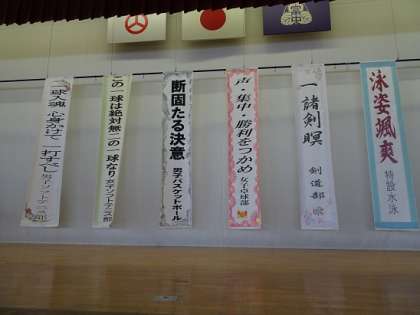 泳姿颯爽
特設水泳
一諸剣瞑
剣道部
声・集中・勝利をつかめ
女子卓球部
断固たる決意
男子バスケットボール
この一球は絶対無二の一球なり
女子ソフトテニス部
一球入魂 心身かけて 一打すべし
男子ソフトテニス部
富中